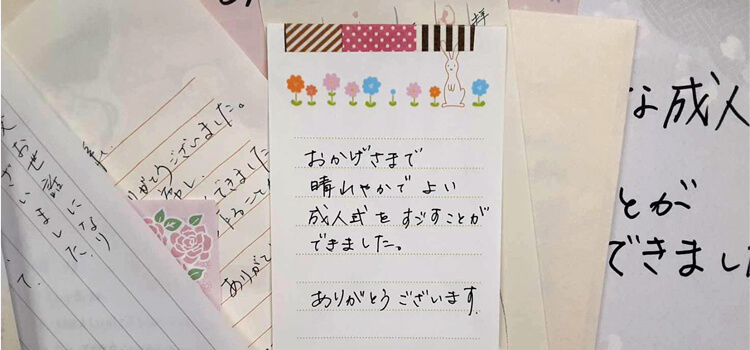 おかげさまで
晴れやかで よい
成人式を すごすことが
できました。
ありがとう ございます
お世話になり
ざいました
ありがとうございました。
できました
ありがと
な成人
とが
できまし